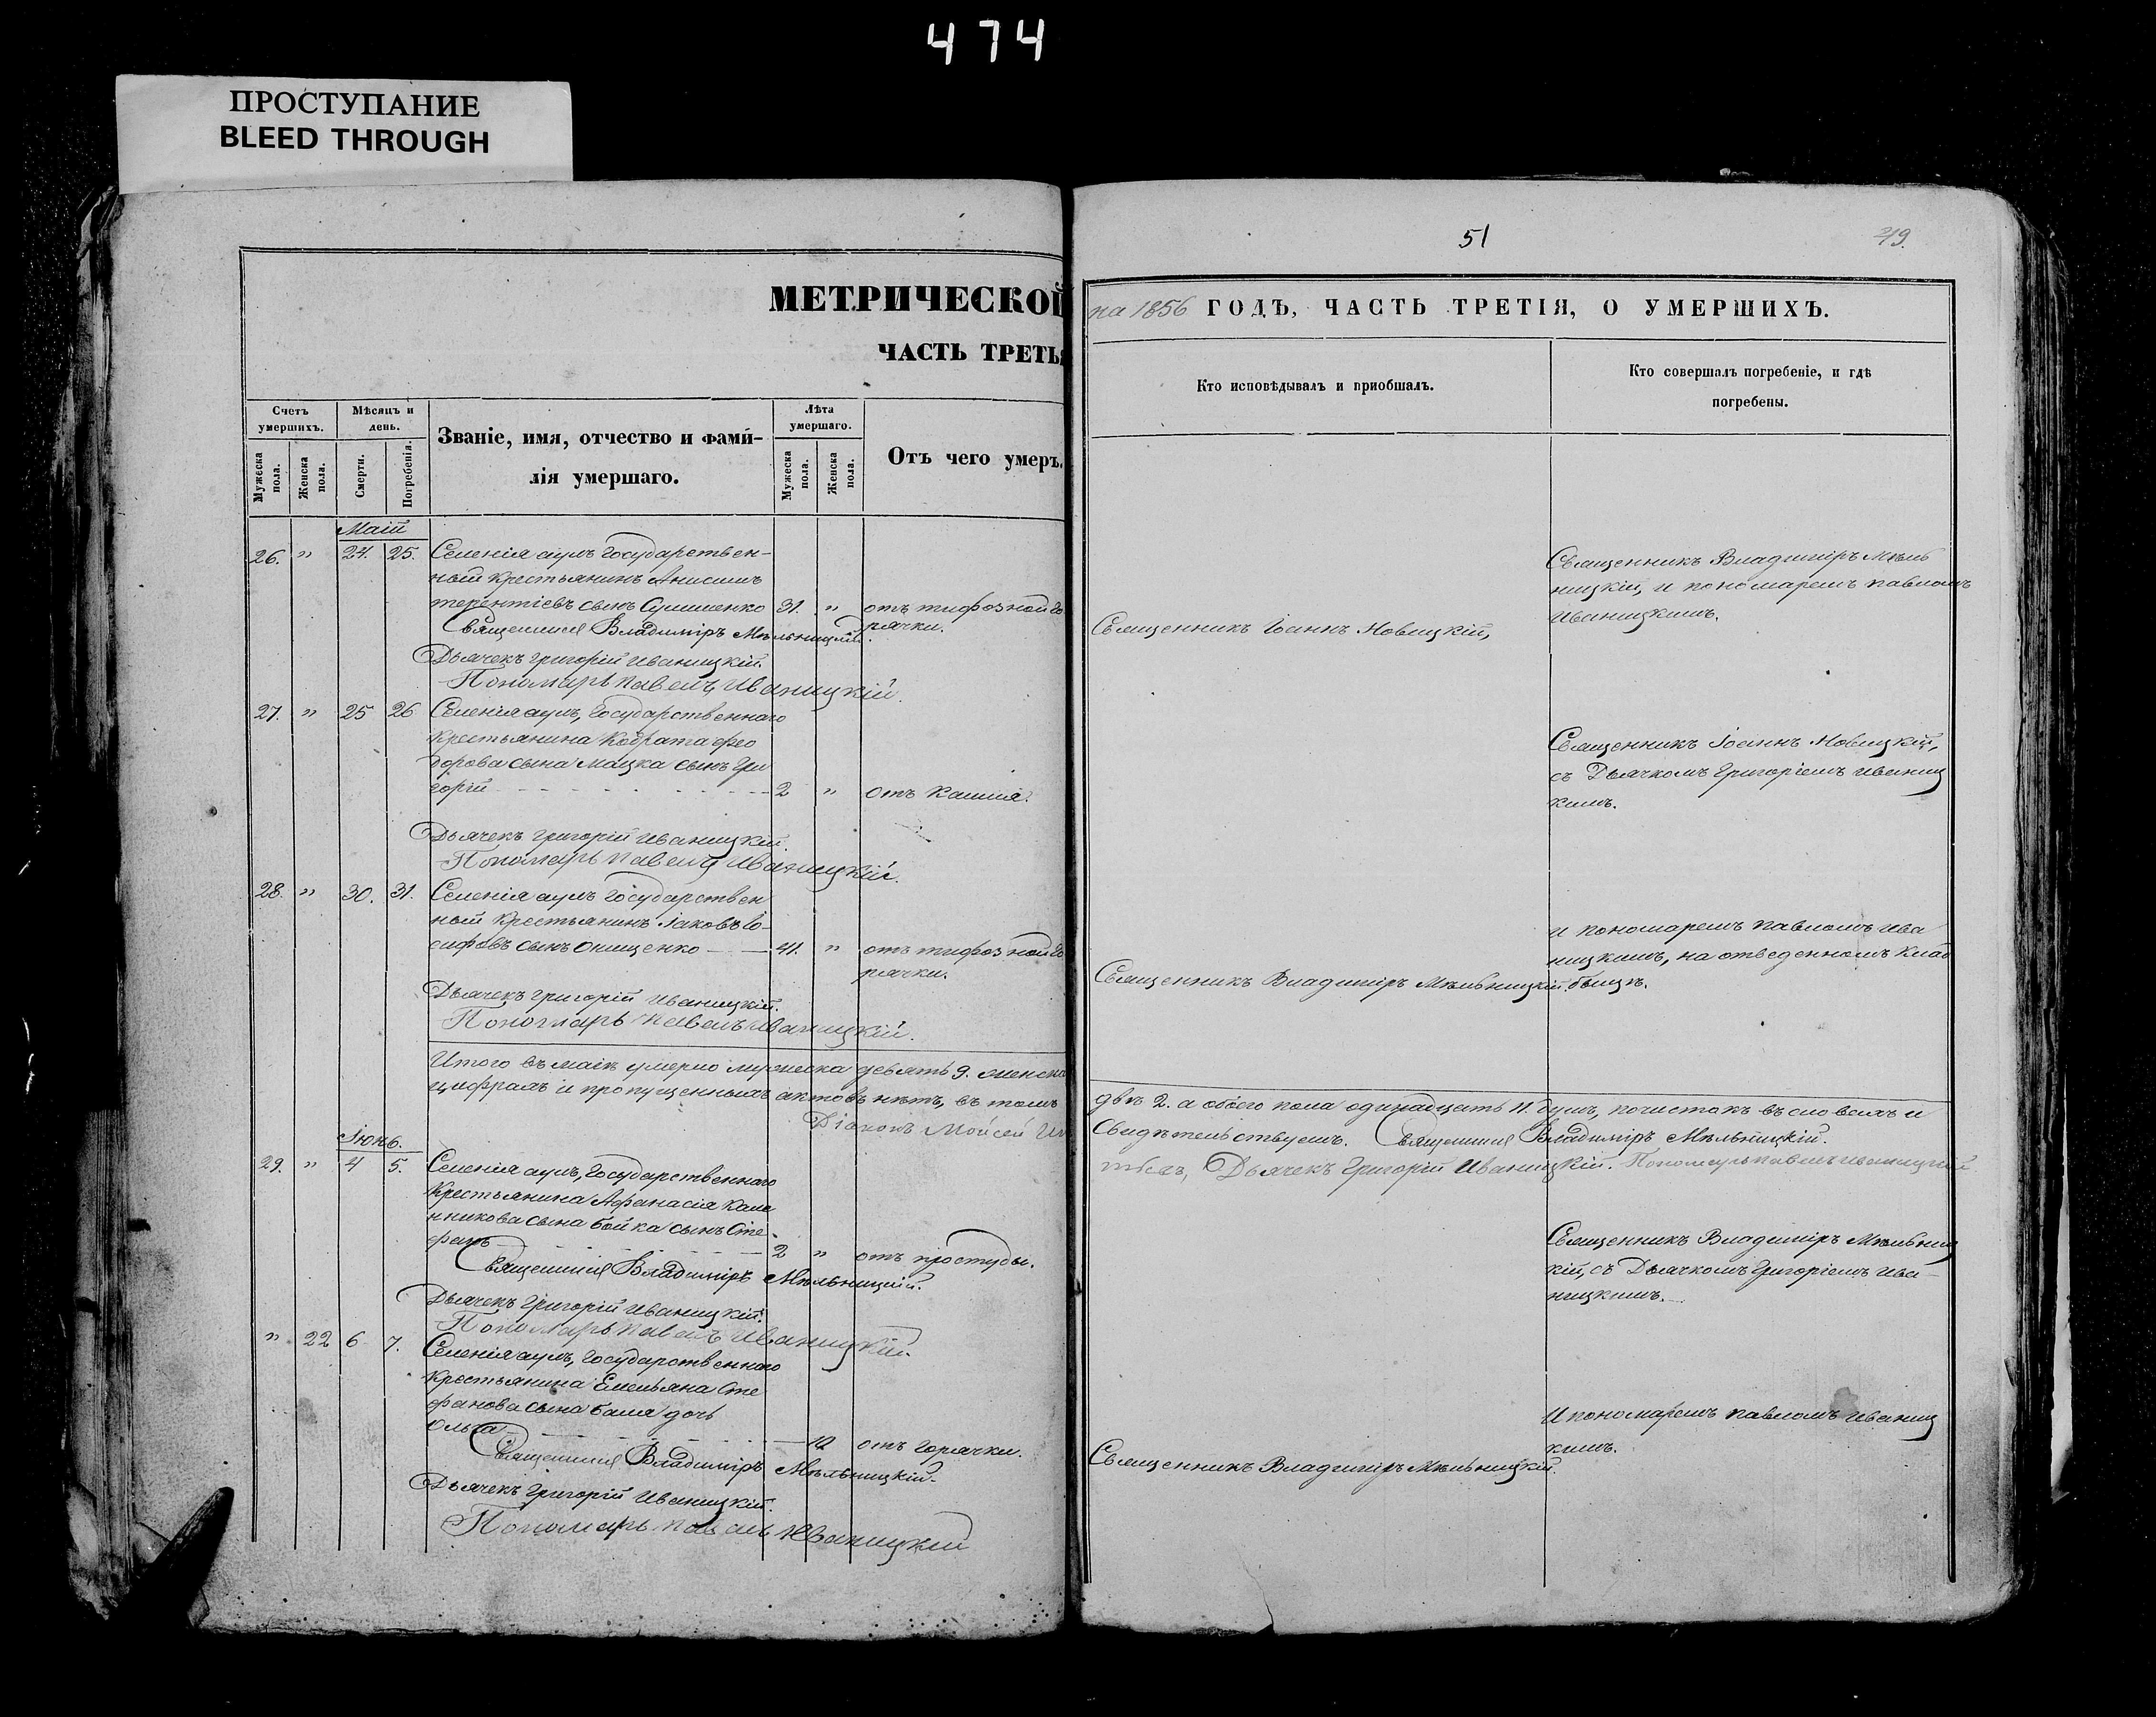 474
ПРОСТУПАНИЕ
BLEED THROUGH
МЕТРИЧЕСКОЙ
ЧАСТЬ ТРЕТЬЯ
Счетъ умершихъ.
Мѣсяцъ и день.
Званіе, имя, отчество и фами-
лія умершаго.
Лѣта умершаго.
Отъ чего умеръ.
Мужеска пола.
Женска пола.
Смерти.
Погребенія.
Мужеска пола.
Женска пола.
Маій
26. " 24. 25. Селенія аулъ государствен-
ный крестьянинъ Анисимъ
терентіевъ сынъ 31. " отъ тифозной го
рячки.
Священникъ Владиміръ Мѣльницкій.
Дьячекъ григорій Иваницкій.
Пономарь павелъ Иваницкій.
27. " 25 26 Селенія аулъ, государственнаго
крестьянина Кодрата Фео
дорова сына Мацка сынъ Гри
горій 2 " отъ кашля.
Дьячекъ григорій Иваницкій.
Пономарь павелъ Иваницкій.
28. " 30. 31. Селенія аулъ государствен
ный крестьянинъ Іаковъ Іо-
сифовъ сынъ Онищенко 41. " отъ тифозной го
рячки.
Дьячекъ григорій Иваницкій.
Пономарь павелъ Иваницкій.
Итого въ маіѣ умерло мужеска девять 9. женска
цифрахъ и пропущенныхъ актовъ нѣтъ, въ томъ
Діаконъ Мойсей
Іюнь.
29. " 4 5. Селенія аулъ, государственнаго
крестьянина Афанасія Кале
нникова сына бойка сынъ Сте-
фанъ 2 " отъ простуды.
Священникъ Владиміръ Мѣльницкій.
Дьячекъ григорій Иваницкій.
Пономарь павелъ Иваницкій.
" 22 6 7. Селенія аулъ, государственнаго
крестьянина Емельяна Сте
фанова сына дочь
Ольга отъ горячки.
Священникъ Владиміръ Мѣльницкій.
Дьячекъ григорій Иваницкій.
Пономарь павелъ Иваницкій
51
49.
на 1856 ГОДЪ, ЧАСТЬ ТРЕТІЯ, О УМЕРШИХЪ.
Кто исповѣдывалъ и приобщалъ.
Кто совершалъ погребеніе, и гдѣ
погребены.
Священникъ Владиміръ Мѣль
ницкій, и пономаремъ павломъ
Иваницкимъ.
Священникъ Іоаннъ Новицкій,
Священникъ Іоаннъ Новицкій,
съ Дьячкомъ григоріемъ иваниц
кимъ.
и пономаремъ павломъ ива
ницкимъ, на отведенномъ клад
бищѣ.
Священникъ Владиміръ Мѣльницкій.
двѣ 2. а обоего пола одинадцать 11. душъ, почистокъ въ словахъ и
свидѣтельствуемъ. Священникъ Владиміръ Мѣльницкій.
Дьячекъ Григорій Иваницкій. Пономарь павелъ иваницкій
Священникъ Владиміръ Мѣльниц
кій, съ Дьячкомъ григоріемъ ива-
ницкимъ.
И пономаремъ павломъ иваниц
кимъ.
Священникъ Владиміръ Мѣльницкій.